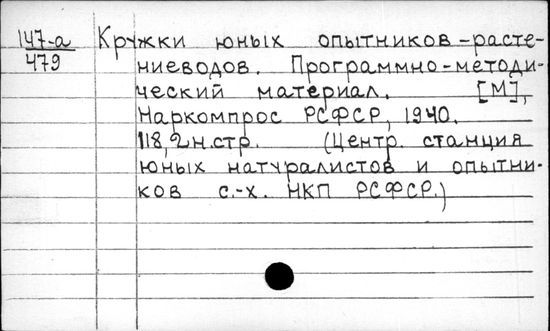 147-а Кружки юных опытников-расте-
479 ниеводов. Программно-методи-
ческий материал. [М],
Наркомпрос РСФСР, 1940.
118, 2 н.стр. (Центр. станция
юных натуралистов и опытни-
ков с.-х. НКП РСФСР.)